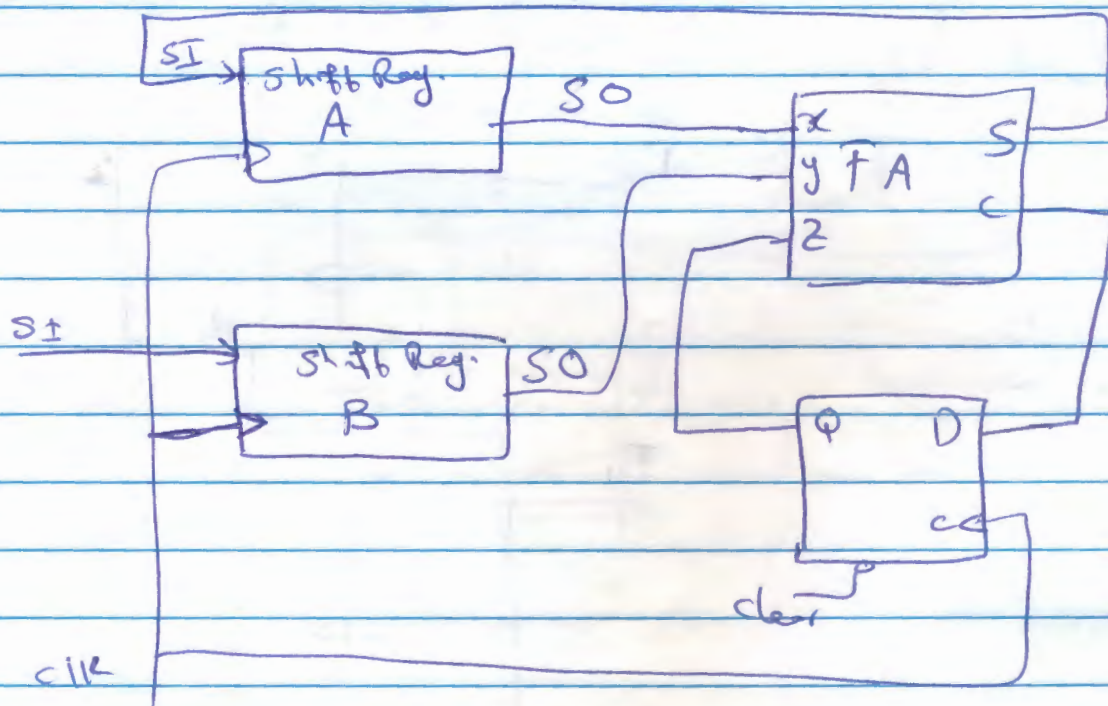 SI
Shift Reg.
A
SO
x
y FA
z
S
C
SI
Shift Reg.
B
SO
Q D
C
clear
clk